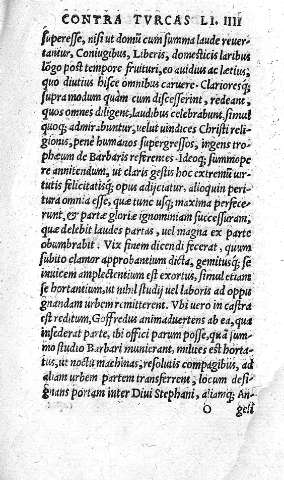 CONTRA TVRCAS LI. IIII
superesse, nisi ut domũ cum summa laude reuer-
tantur, Coniugibus, Liberis, domesticis laribus
lõgo post tempore fruituri, eo auidius ac lætius,
quo diutius hisce omnibus caruere. Clarioresq;
supra modum quàm cum discesserint, redeant,
quos omnes diligent, laudibus celebrabunt, simul
quoq; admirabuntur, uelut uindices Christi reli-
gionis, penè humanos supergressos, ingens tro-
phæum de Barbaris referentes. Ideoq; summope
re annitendum, ut claris gestis hoc extremũ uir-
tutis felicitatisq; opus adijciatur, alioquin peri-
tura omnia esse, quæ tunc usq; maxima perfece-
runt, et partæ gloriæ ignominiam successuram,
quæ delebit laudes partas, uel magna ex parte
obumbrabit. Vix finem dicendi fecerat, quum
subito clamor approbantium dicta, gemitusq; se
inuicem amplectentium est exortus, simul etiam
se hortantium, ut nihil studij uel laboris ad oppu
gnandam urbem remitterent. Vbi uero in castra
est reditum, Goffredus animaduertens ab ea, qua
insederat parte, ibi offici parum posse, quã sum-
mo studio Barbari munierant, milites est horta-
tus, ut noctu machinas, resolutis compagibus, ad
aliam urbem partem transferrent, locum desi-
gnans portam inter Diui Stephani, aliamq; An-
O geli